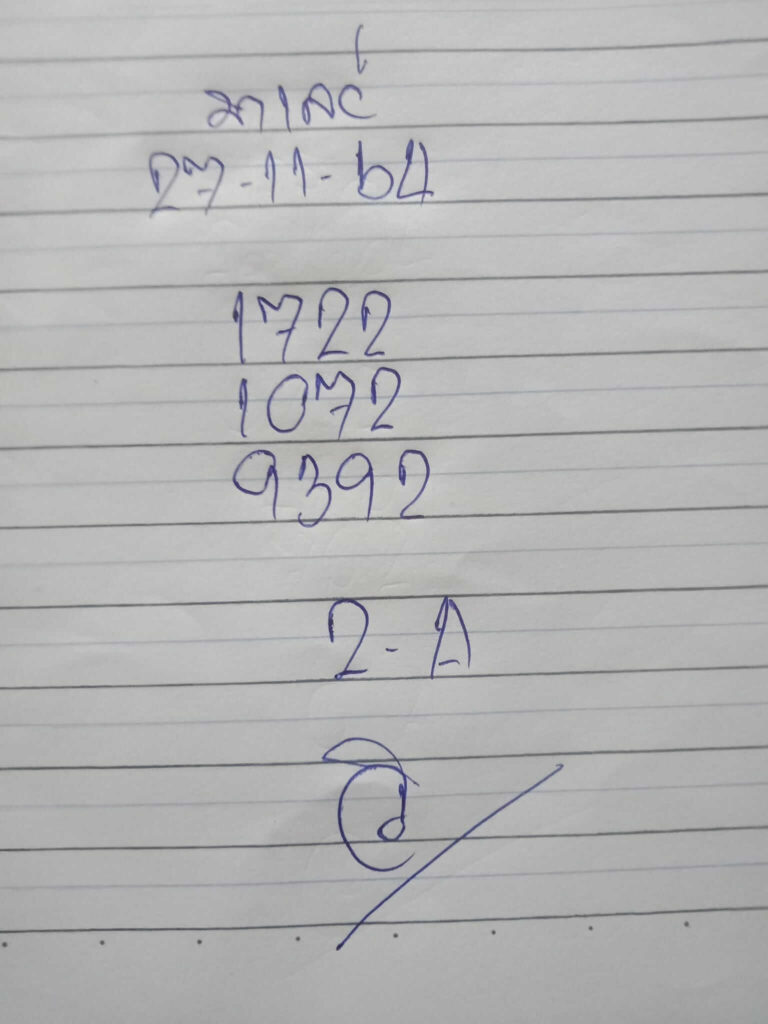 มาเลย์
27-11-64
1722
1072
9392
2-A